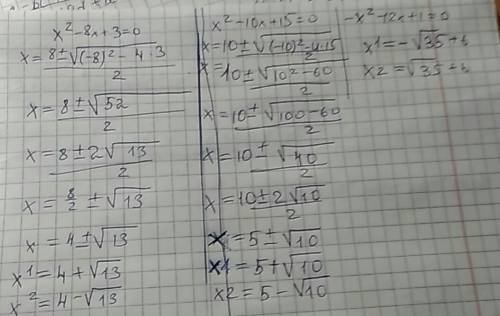 x²-8x+3=0
x=8±√(-8)²-4·3
2
x=8±√52
2
x=8±2√13
2
x=8/2±√13
x=4±√13
x1=4+√13
x2=4-√13
x²-10x+15=0
x=10±√(-10)²-4·15
2
x=10±√10²-60
2
x=10±√100-60
2
x=10±√40
2
x=10±2√10
2
x=5±√10
x1=5+√10
x2=5-√10
-x²-12x+1=0
x1=-√35+
x2=√35+